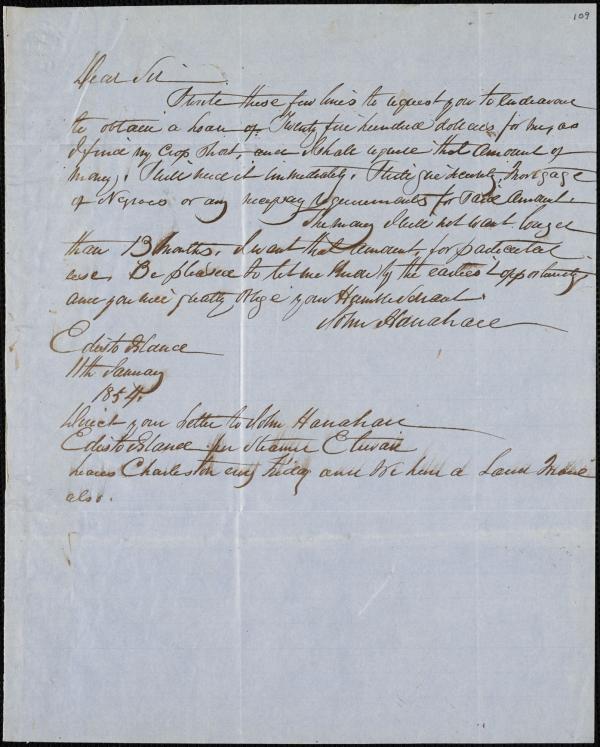 109
Dear Sir
I write these few lines to request you to endeavour
to obtain a loan of Twenty five hundred dollars for me, as
I find my crop short, and I shall require that amount of
money. I will need it immediately. I will give security, Mortgage
of Negroes or any necessary requirements for said amount.
The money I will not want longer
than 13 Months. I want that amount, for particular
use. Be pleased to let me know by the earliest opportunity
and you will greatly oblige your Humble Servant.
John Hanahan
Edisto Island
11th January
1854.
Direct your letter to John Hanahan
Edisto Island per Steamer Etiwan
leaves Charleston every Friday and We have a Land
also.